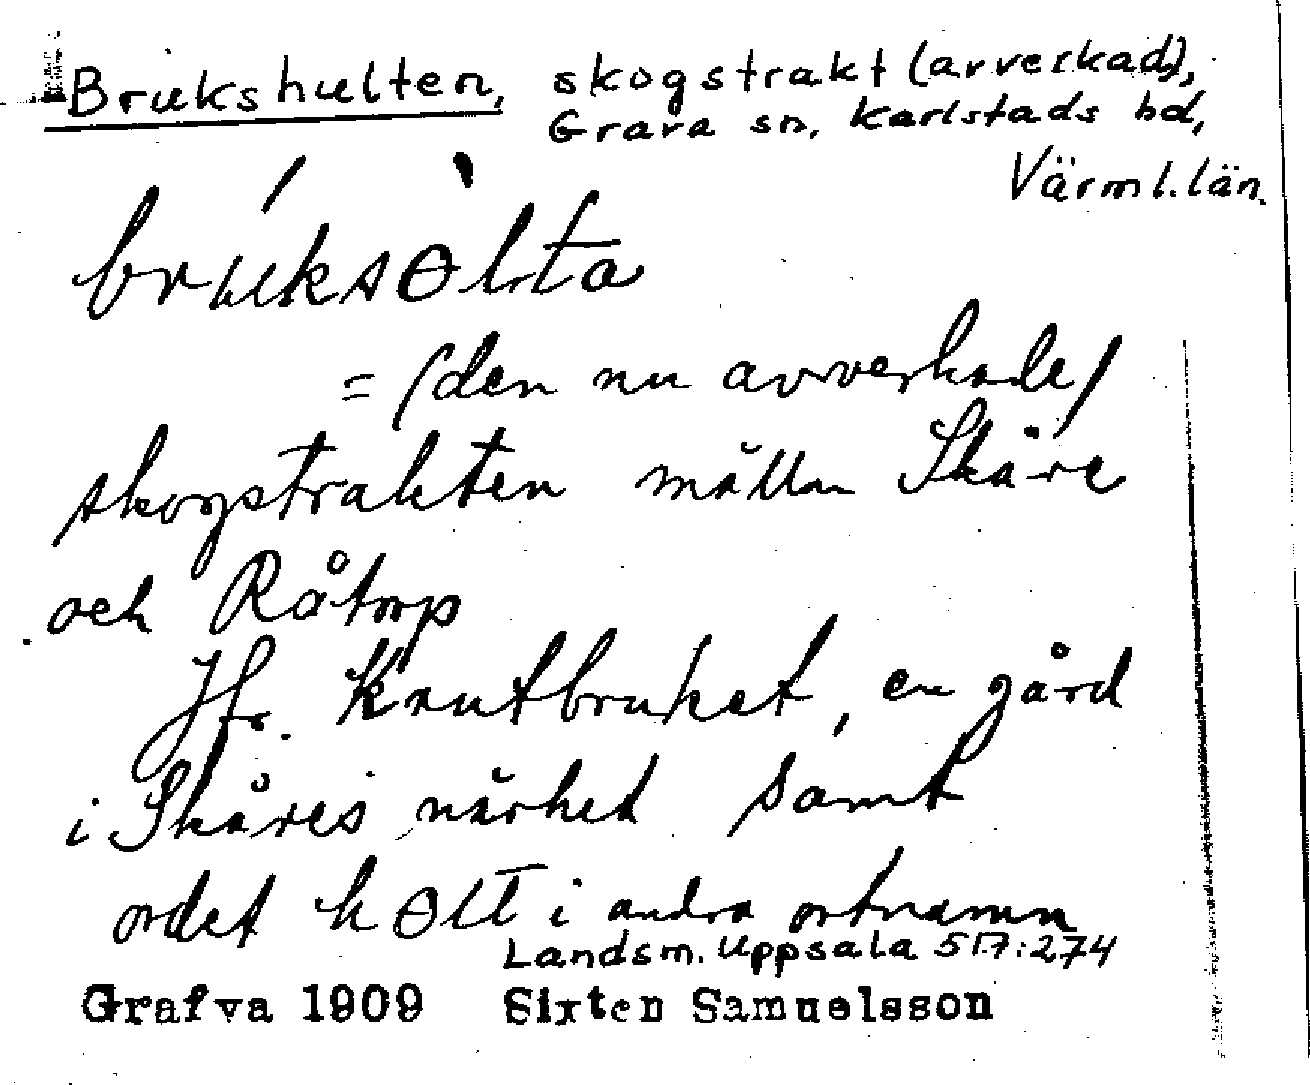 Brukshulten, skogstrakt (avverkad),
Grava sn, Karlstads hd,
Värml. län.
bruksɵlta
= (den nu avverkade)
skogstrakten mällan Skåre
och Råtorp
Jfr. Knutbruket, en gård
i Skåres närhet samt
ordet hɵlt i andra ortnamn
Landsm. Uppsala 517:274
Grafva 1909 Sixten Samuelsson